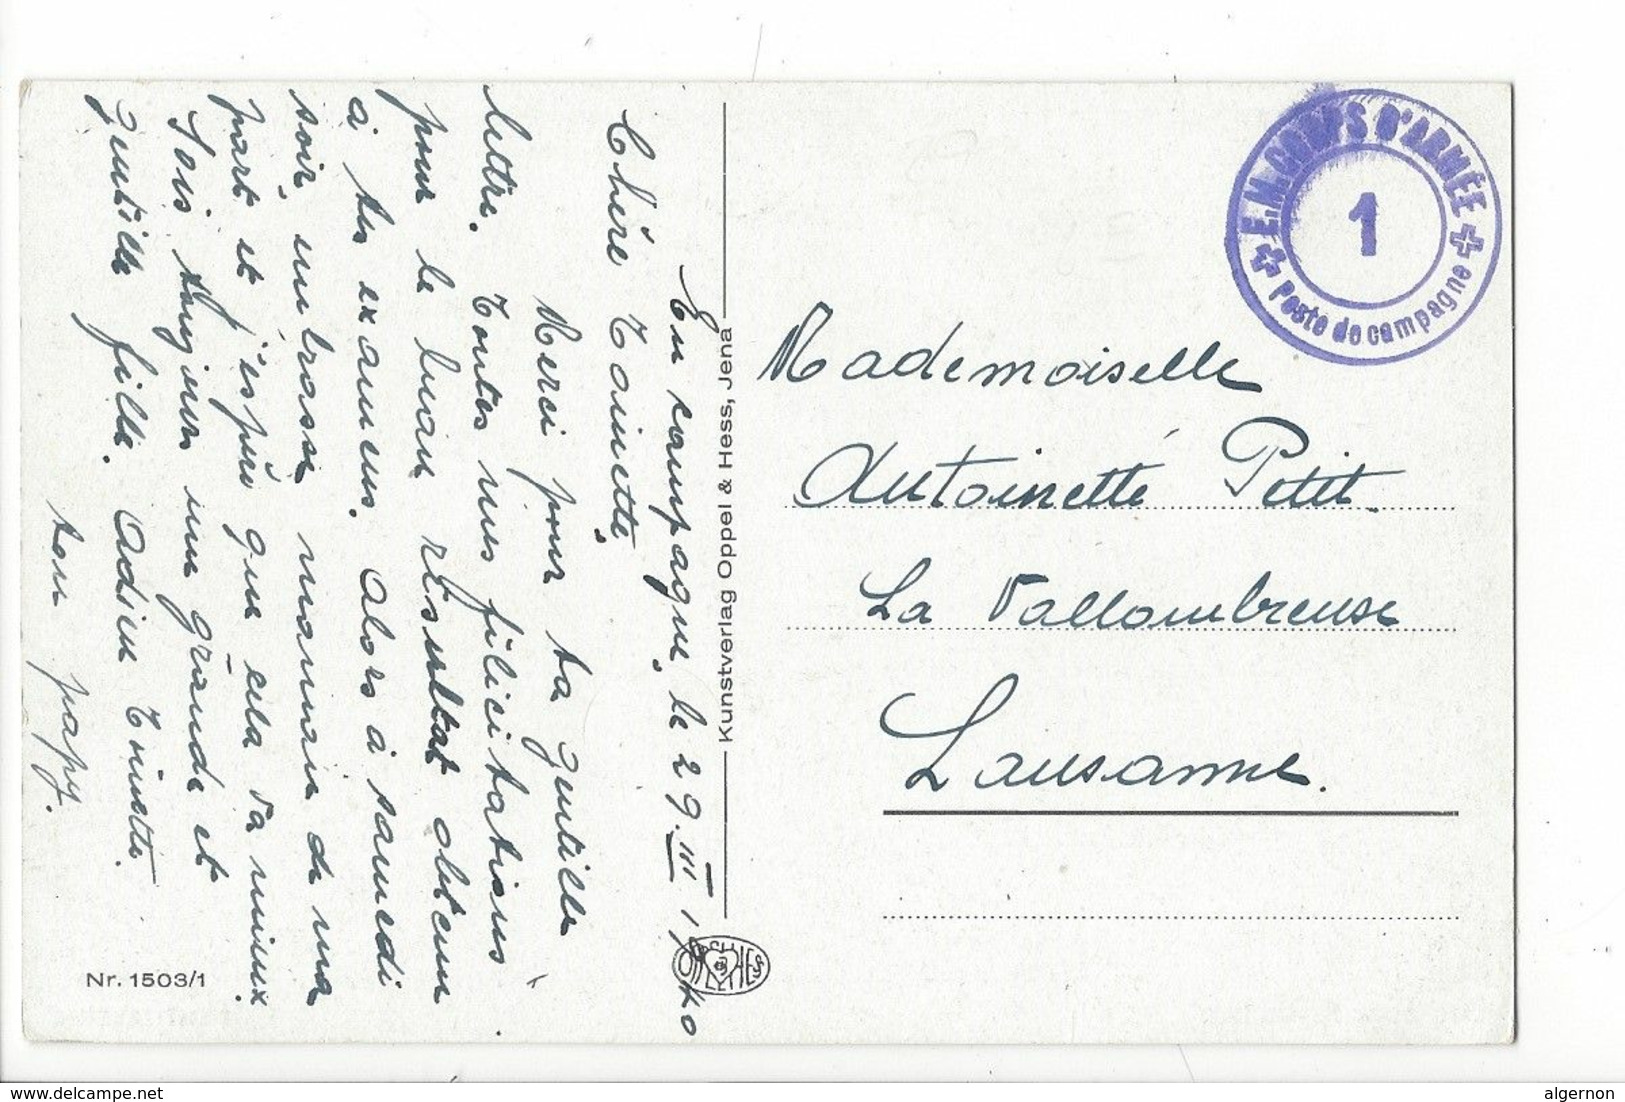 En campagne, le 29. III 1940
Chère Toinette,
Merci pour ta gentille
lettre. Toutes mes félicitations
pour le beau résultat obtenu
à tes examens. Alors à samedi
soir, embrasse maman de ma
part et j'espère que cela va mieux.
Sois toujours une grande et
gentille fille. Adieu Toinette.
ton papy.
Nr. 1503/1
Kunstverlag Oppel & Hess, Jena
OPPEL HESS
E.M. CORPS D'ARMÉE
1
Poste de campagne
Mademoiselle
Antoinette Petit.
La Vallombreuse
Lausanne.
www.delcampe.net
algernon